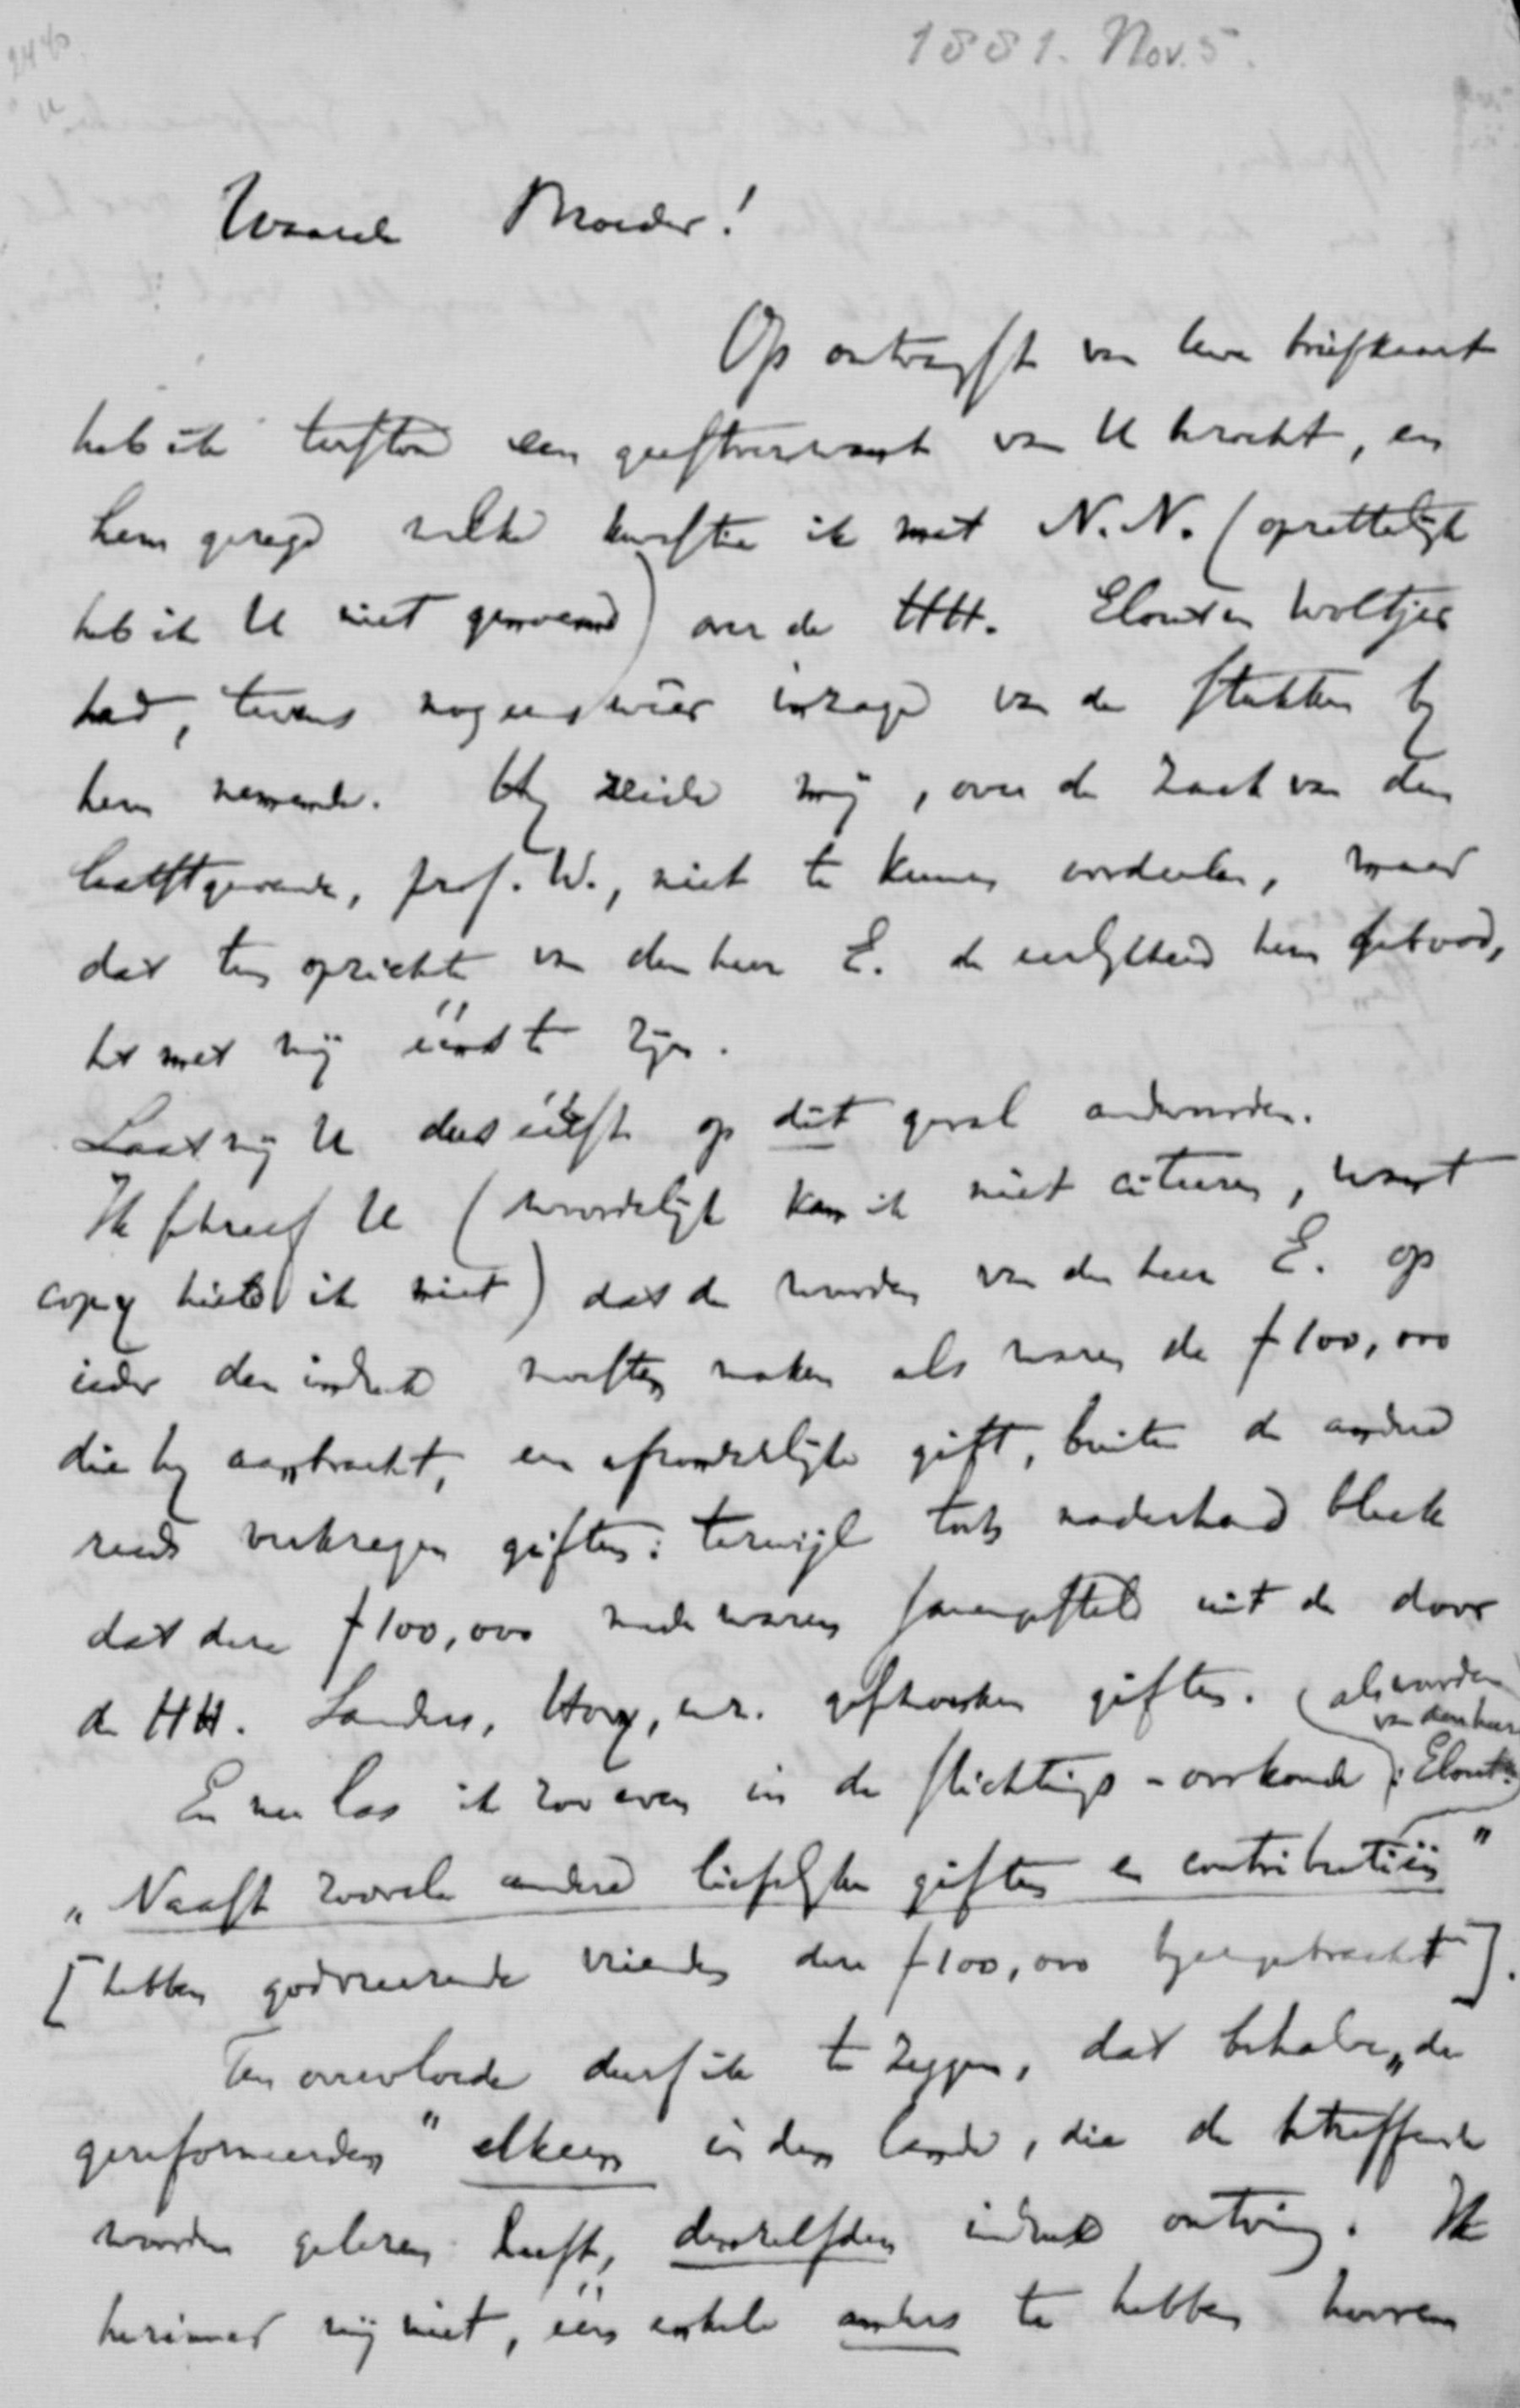 1881. Nov. 5.
Waarde Broeder!
Op ontvangst van Uwe briefkaart
heb ik terstond een geestverwant van U bezocht, en
hem gezegd welke kwestie ik met N.N. (opzettelijk
heb ik U niet genoemd) over de HH. Elout en Woltjer
had, tevens nog eens weêr inzage van de stukken by
hem nemende. Hy zeide mij, over de zaak van den
laatstgenoemde, prof. W., niet te kunnen oordeelen, maar
dat ten opzichte van den heer E. de eerlykheid hem gebood,
het met mij ééns te zijn.
Laat mij U dus éérst op dit geval antwoorden.
Ik schreef U (woordelijk kan ik niet citeeren, want
copy hield ik niet) dat de woorden van den heer E. op
ieder den indruk moesten maken als waren de f 100,000
die hy aanbracht, een afzonderlijke gift, buiten de andere
reeds verkregen giften: terwijl toch naderhand bleek
dat deze f 100,000 mede waren saamgesteld uit de door
de HH. Sanders, Hovy, enz. geschonken giften.
En nu las ik zoo even in de stichtings-oorkonde (als woorden
van den heer
Elout):
„Naast zoovele andere liefelyke giften en contributiën"
[hebben godvreezende vrienden deze f 100,000 byeengebracht].
Ten overvloede durf ik te zeggen, dat behalve „de
gereformeerden" elkeen in den lande, die de betreffende
woorden gelezen heeft, denzelfden indruk ontving. Ik
herinner mij niet, één enkele anders te hebben hooren